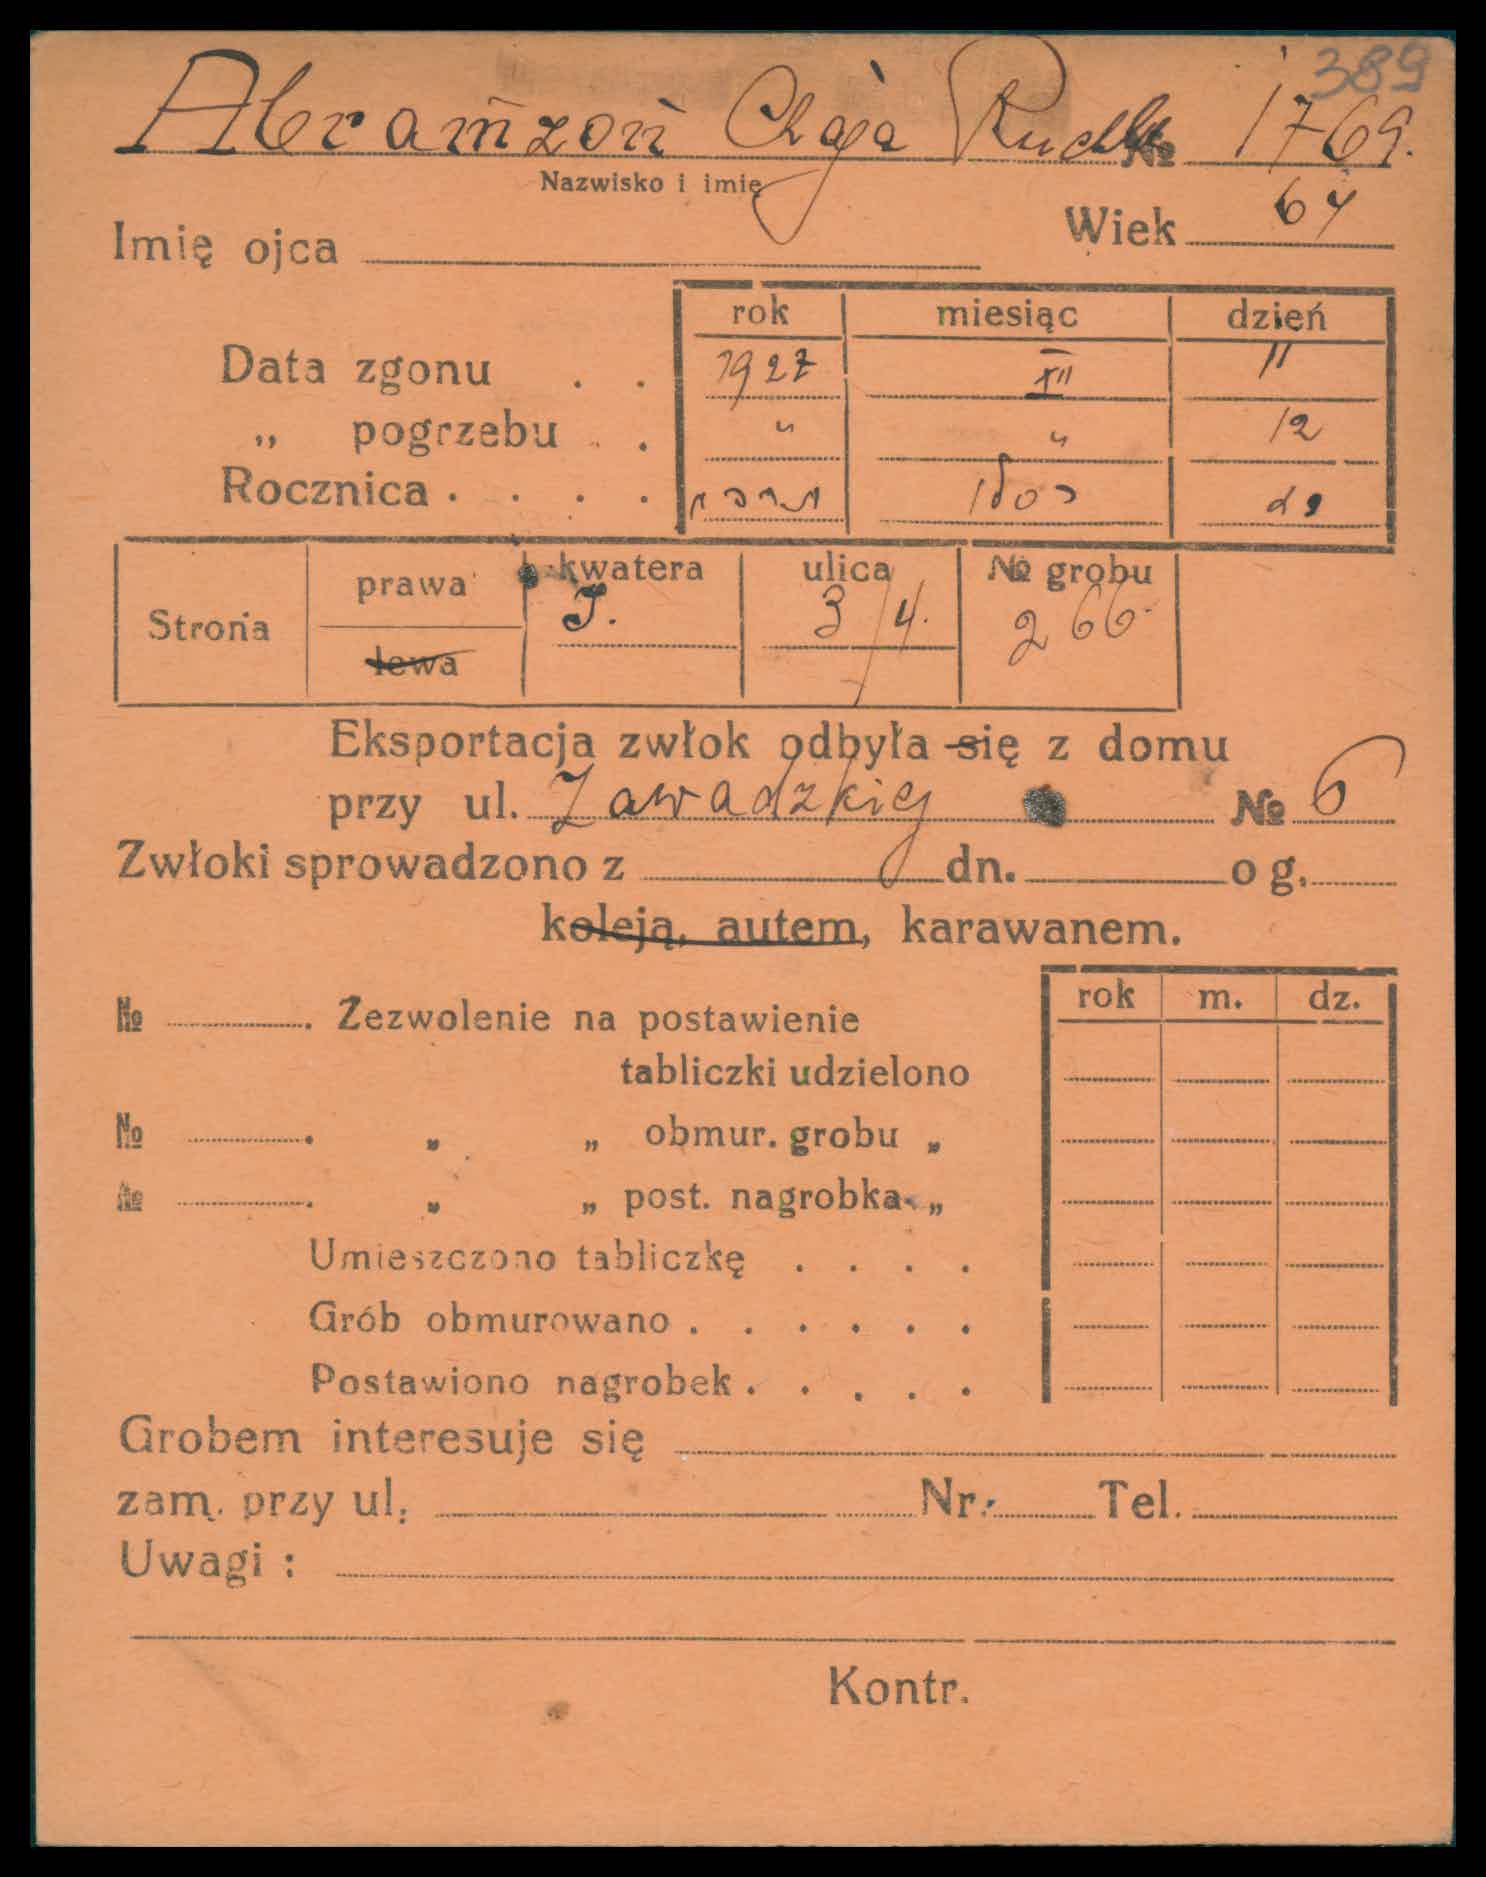 389
Abramzon Chaja Ruchla № 1769.
Nazwisko i imię
Imię ojca Wiek 64
rok miesiąc dzień
Data zgonu . . 1927 XII 11
„ pogrzebu . . " " 12
Rocznica . . . .
Strona prawa lewa kwatera J. ulica 3/4. № grobu 266.
Eksportacja zwłok odbyła się z domu
przy ul. Zawadzkiej № 6
Zwłoki sprowadzono z dn. o g.
koleją, autem, karawanem.
rok m. dz.
№ . Zezwolenie na postawienie
tabliczki udzielono
№ . „ „ obmur. grobu „
№ . „ „ post. nagrobka „
Umieszczono tabliczkę . . . .
Grób obmurowano . . . . . .
Postawiono nagrobek . . . . .
Grobem interesuje się
zam. przy ul. Nr. Tel.
Uwagi :
Kontr.